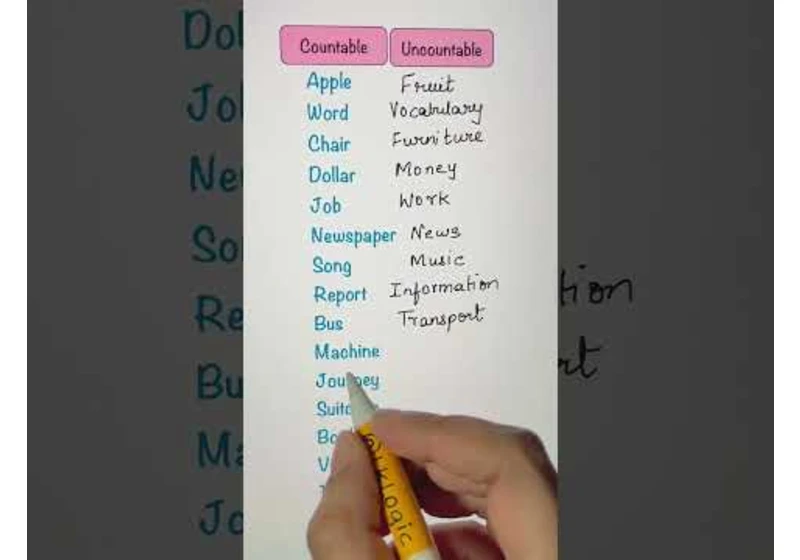 Countable Uncountable
Apple Fruit
Word Vocabulary
Chair Furniture
Dollar Money
Job Work
Newspaper News
Song Music
Report Information
Bus Transport
Machine
Journey